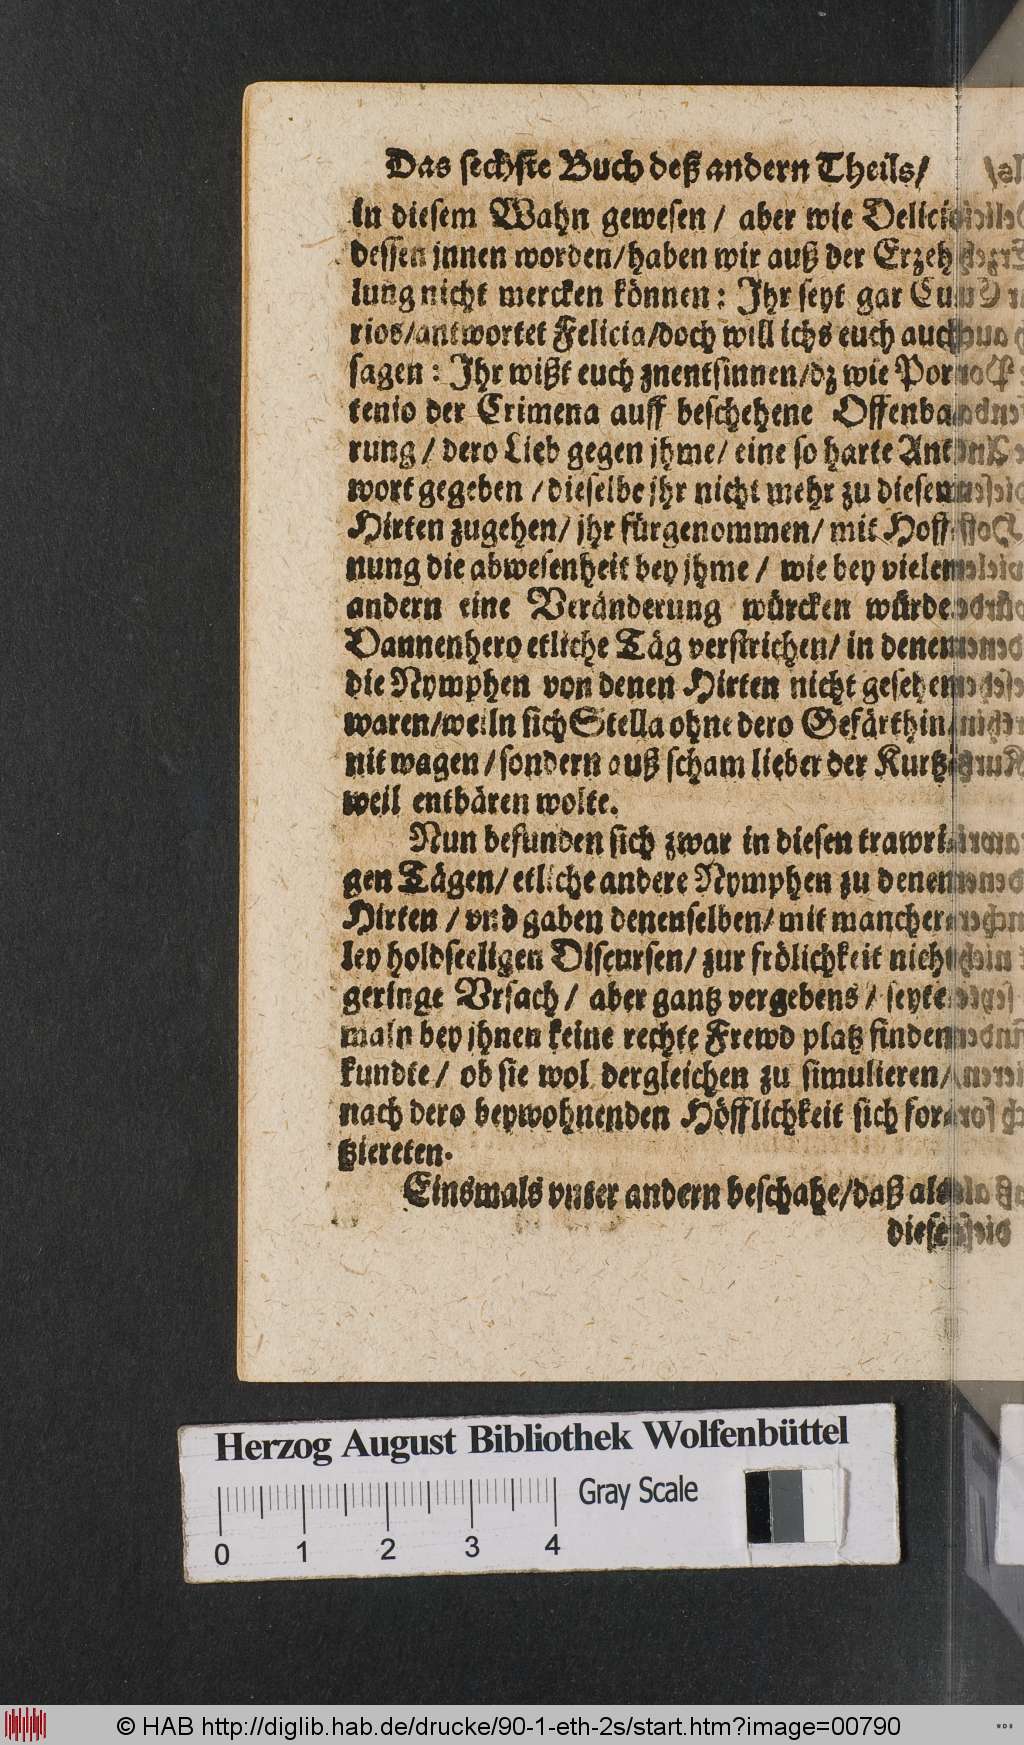 Das sechste Buch deß andern Theils/
in diesem Wahn gewesen / aber wie Delicio
dessen jnnen worden/haben wir auß der Erzeh
lung nicht mercken können: Jhr seyt gar Cu
rios/antwortet Felicia/doch will ichs euch auch
sagen: Jhr wißt euch znentsinnen/dz wie Por
tenio der Crimena auff beschehene Offenba
rung / dero Lieb gegen jhme/ eine so harte Ant
wort gegeben / dieselbe jhr nicht mehr zu diesem
Hirten zugehen/ jhr fürgenommen/ mit Hoff
nung die abwesenheit bey jhme / wie bey vielen
andern eine Veränderung würcken würde
Dannenhero etliche Täg verstrichen/ in denen
die Nymphen von denen Hirten nicht gesehen
waren/weiln sich Stella ohne dero Gefärthin
nit wagen / sondern auß scham lieber der Kurtz
weil entbären wolte.
Nun befunden sich zwar in diesen trawri
gen Tägen/ etliche andere Nymphen zu denen
Hirten / vnd gaben denenselben/ mit mancher
ley holdseeligen Discursen/ zur frölichkeit nicht
geringe Vrsach / aber gantz vergebens / seyte
maln bey jhnen keine rechte Frewd platz finden
kundte / ob sie wol dergleichen zu simulieren/
nach dero beywohnenden Höfflichkeit sich for
tziereten.
Einsmals vnter andern beschahe/daß als
diese
Herzog August Bibliothek Wolfenbüttel
Gray Scale
0 1 2 3 4
© HAB http://diglib.hab.de/drucke/90-1-eth-2s/start.htm?image=00790